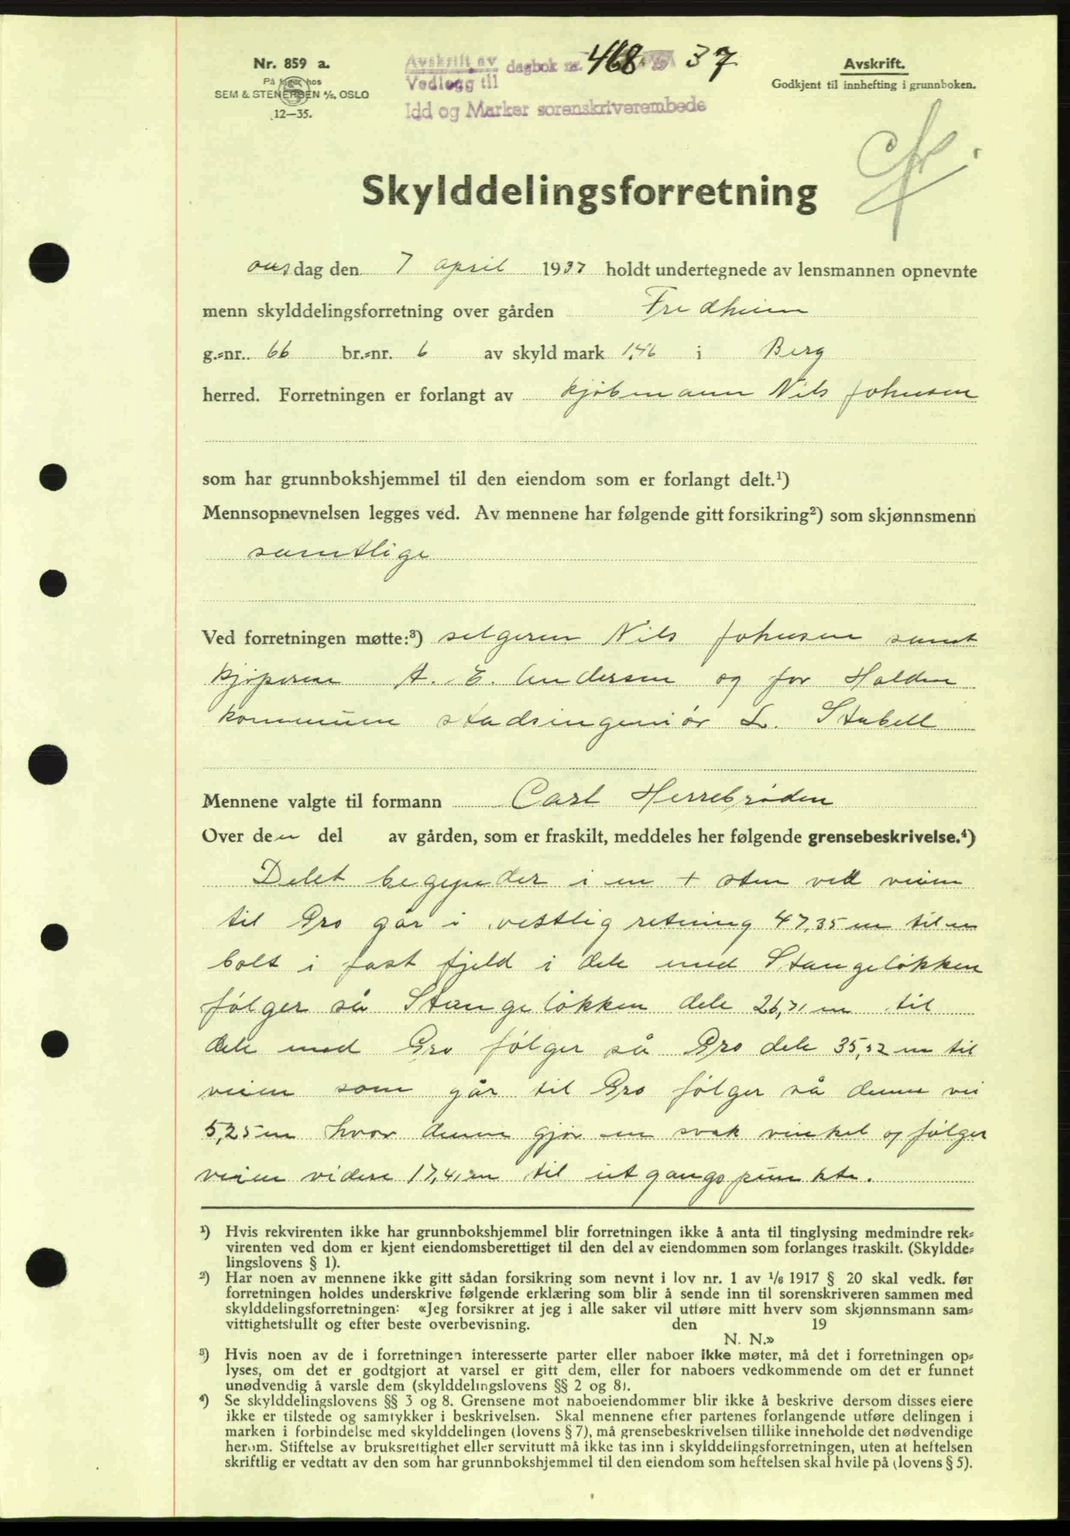 Nr. 859 a.
På lager hos
SEM & STENERSEN A/S, OSLO
12—35.
Avskrift av
Vedlegg til dagbok nr. 468 37
Idd og Marker sorenskriverembede
Avskrift.
Godkjent til innhefting i grunnboken.
Skylddelingsforretning
onsdag den 7 april 1937 holdt undertegnede av lensmannen opnevnte
menn skylddelingsforretning over gården Fredheim
g.=nr. 66 br.=nr. 6 av skyld mark 1,46 i Berg
herred. Forretningen er forlangt av kjøbmann Nils Johnsen
som har grunnbokshjemmel til den eiendom som er forlangt delt.¹)
Mennsopnevnelsen legges ved. Av mennene har følgende gitt forsikring²) som skjønnsmenn
samtlige
Ved forretningen møtte:³) selgeren Nils Johnsen samt
kjøperen A. E. Andersen og for Halden
kommune stadsingeniør L. Stabell
Mennene valgte til formann Carl Herrebrøden
Over den del av gården, som er fraskilt, meddeles her følgende grensebeskrivelse.⁴)
Delet begynder i en + sten ved veien
til Bro går i vestlig retning 47,35 m til en
bolt i fast fjeld i dele med Stangeløkken
følger så Stangeløkken dele 26,71 m til
dele med Bro følger så Bro dele 35,52 m til
veien som går til Bro følger så denne vei
5,25 m hvor denne gjør en svak vinkel og følger
veien videre 17,41 m til utgangspunkte.
¹) Hvis rekvirenten ikke har grunnbokshjemmel blir forretningen ikke å anta til tinglysing medmindre rek=
virenten ved dom er kjent eiendomsberettiget til den del av eiendommen som forlanges fraskilt. (Skyldde=
lingslovens § 1).
²) Har noen av mennene ikke gitt sådan forsikring som nevnt i lov nr. 1 av 1/6 1917 § 20 skal vedk. før
forretningen holdes underskrive følgende erklæring som blir å sende inn til sorenskriveren sammen med
skylddelingsforretningen: «Jeg forsikrer at jeg i alle saker vil utføre mitt hverv som skjønnsmann sam=
vittighetsfullt og efter beste overbevisning. den 19
N. N.»
³) Hvis noen av de i forretningen interesserte parter eller naboer ikke møter, må det i forretningen op=
lyses, om det er godtgjort at varsel er gitt dem, eller for naboers vedkommende om det er funnet
unødvendig å varsle dem (skylddelingslovens §§ 2 og 8).
⁴) Se skylddelingslovens §§ 3 og 8. Grensene mot naboeiendommer blir ikke å beskrive dersom disses eiere
ikke er tilstede og samtykker i beskrivelsen. Skal mennene efter partenes forlangende utføre delingen i
marken i forbindelse med skylddelingen (lovens § 7), må grensebeskrivelsen tillike inneholde det nødvendige
herom. Stiftelse av bruksrettighet eller servitutt må ikke tas inn i skylddelingsforretningen, uten at heftelsen
skriftlig er vedtatt av den som har grunnbokshjemmel til den eiendom som heftelsen skal hvile på (lovens § 5).